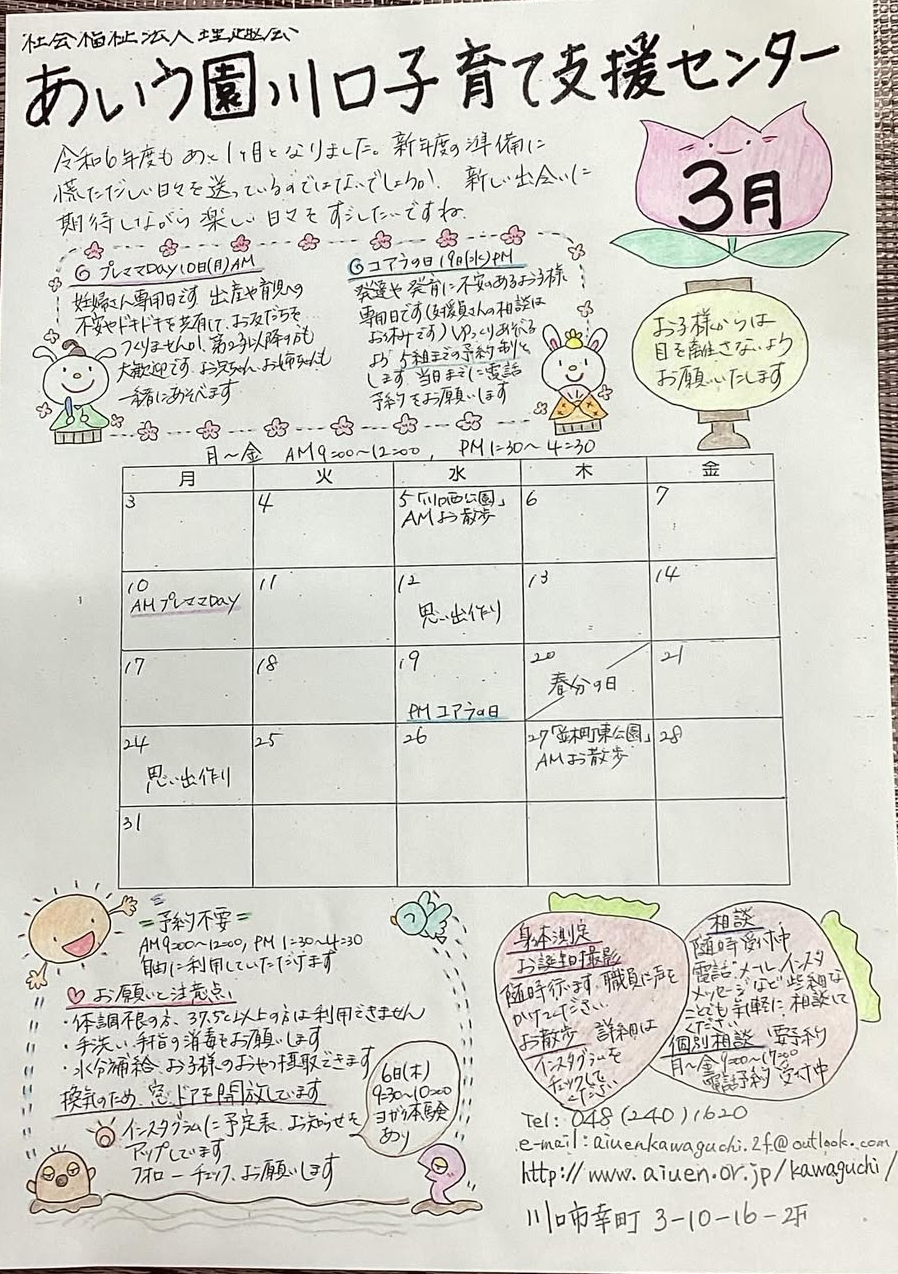 社会福祉法人理趣会
あいう園川口子育て支援センター
令和6年度もあと1ヶ月となりました。新年度の準備に
慌ただしい日々を送っているのではないでしょうか。新しい出会いに
期待しながら楽しい日々をすごしたいですね。
3月
◎プレママDay 10日(月)AM
妊婦さん専用日です。出産や育児への
不安やドキドキを共有して、お友だちを
つくりませんか。第2子以降の方も
大歓迎です。お兄ちゃん、お姉ちゃんも
一緒にあそべます
◎コアラの日 19日(水)PM
発達や発育に不安のあるお子様
専用日です(支援員さんの相談は
お休みです)ゆっくりあそべる
よう5組までの予約制と
します。当日までに電話
予約をお願いします
お子様からは
目を離さないよう
お願いいたします
月～金 AM9:00～12:00, PM1:30～4:30
月 火 水 木 金
3 4 5「川口西公園」 6 7
AMお散歩
10 11 12 13 14
AMプレママDay
思い出作り
17 18 19 20 21
春分の日
PMコアラの日
24 25 26 27「並木町東公園」 28
AMお散歩
思い出作り
31
=予約不要=
AM9:00～12:00, PM1:30～4:30
自由に利用していただけます
お願いと注意点
・体調不良の方、37.5℃以上の方は利用できません
・手洗い、手指の消毒をお願いします
・水分補給、お子様のおやつ摂取できます
換気のため、窓、ドアを開放しています
インスタグラムに予定表、お知らせを
アップしています
フォロー、チェック、お願いします
6日(木)
9:30～10:00
ヨガ体験
あり
身体測定
お誕生日撮影
随時行います。職員に声を
かけてください
お散歩 詳細は
インスタグラムを
チェックして
ください
相談
随時受付中
電話、メール、インスタ
メッセージなど些細な
ことでも気軽に相談して
ください
個別相談 要予約
月～金9:00～17:00
電話予約 受付中
Tel: 048(240)1620
e-mail: aiuenkawaguchi.2f@outlook.com
http://www.aiuen.or.jp/kawaguchi/
川口市幸町 3-10-16-2F